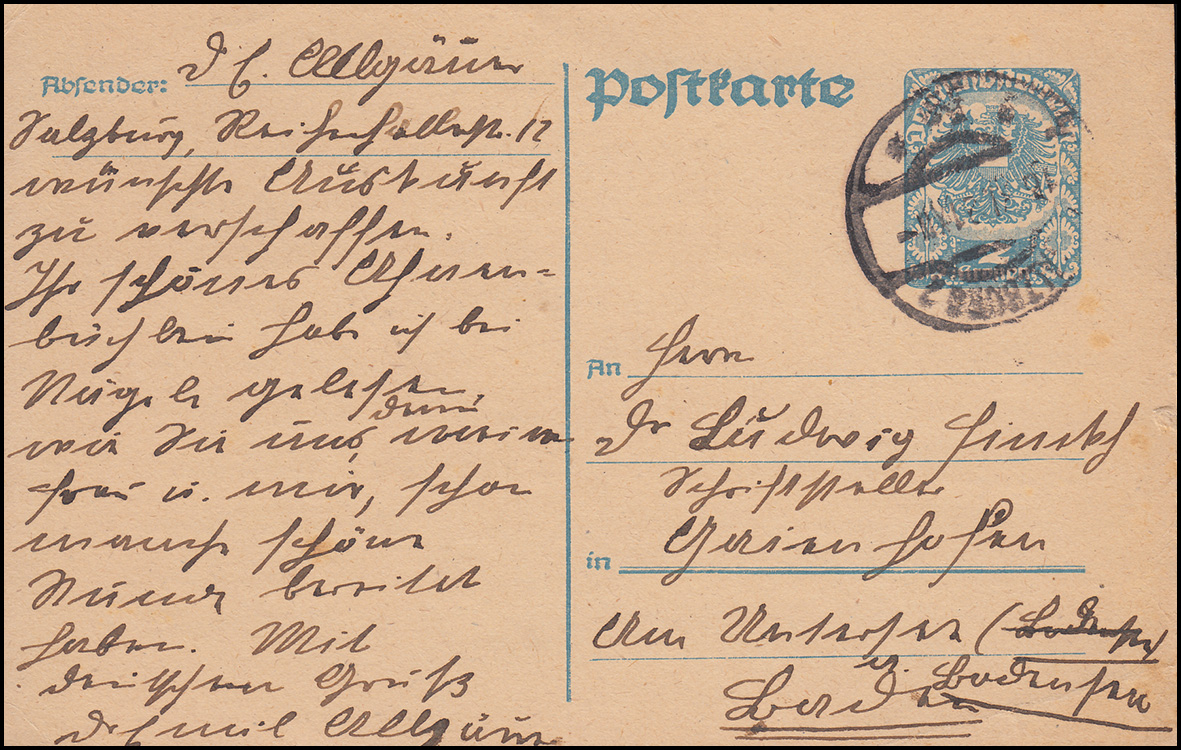 Postkarte
Absender: Dr E. Allgäuer
Salzburg, Reichenhallerstr. 12
wünschte Auskunft
zu verschaffen.
Ihr schönes Ahnen-
büchlein habe ich bei
Nägele gelesen,
wie Sie uns, meiner
denn
Frau u. mir, schon
manche schöne
Stunde bereitet
haben. Mit
deutschem Gruß
Dr Emil Allgäuer
An Herrn
Dr Ludwig Finckh
Schriftsteller
in Gaienhofen
Am Untersee (Bodensee)
a. Bodensee
Baden